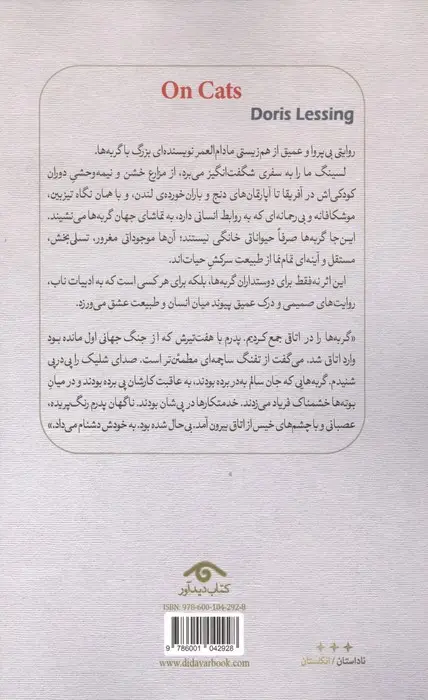 On Cats
Doris Lessing
روایتی بی‌پروا و عمیق از هم‌زیستی مادام‌العمر نویسنده‌ای بزرگ با گربه‌ها.
لسینگ ما را به سفری شگفت‌انگیز می‌برد، از مزارع خشن و نیمه‌وحشیِ دوران
کودکی‌اش در آفریقا تا آپارتمان‌های دنج و باران‌خورده‌ی لندن، و با همان نگاه تیزبین،
موشکافانه و بی‌رحمانه‌ای که به روابط انسانی دارد، به تماشای جهان گربه‌ها می‌نشیند.
این‌جا گربه‌ها صرفاً حیواناتی خانگی نیستند؛ آن‌ها موجوداتی مغرور، تسلی‌بخش،
مستقل و آینه‌ای تمام‌نما از طبیعت سرکشِ حیات‌اند.
این اثر نه‌فقط برای دوستداران گربه‌ها، بلکه برای هر کسی است که به ادبیات ناب،
روایت‌های صمیمی و درک عمیق پیوند میان انسان و طبیعت عشق می‌ورزد.
«گربه‌ها را در اتاق جمع کردیم. پدرم با هفت‌تیرش که از جنگ جهانی اول مانده بود
وارد اتاق شد. می‌گفت از تفنگ ساچمه‌ای مطمئن‌تر است. صدای شلیک را پی‌در‌پی
شنیدم. گربه‌هایی که جان سالم به‌در برده بودند، به عاقبت کارشان پی برده بودند و در میان
بوته‌ها خشمناک فریاد می‌زدند. خدمتکارها در پی‌شان بودند. ناگهان پدرم رنگ‌پریده،
عصبانی و با چشم‌های خیس از اتاق بیرون آمد. بی‌حال شده بود. به خودش دشنام می‌داد.»
کتاب دیدآور
ISBN: 978-600-104-292-8
9 786001 042928
www.didavarbook.com
ناداستان / انگلستان